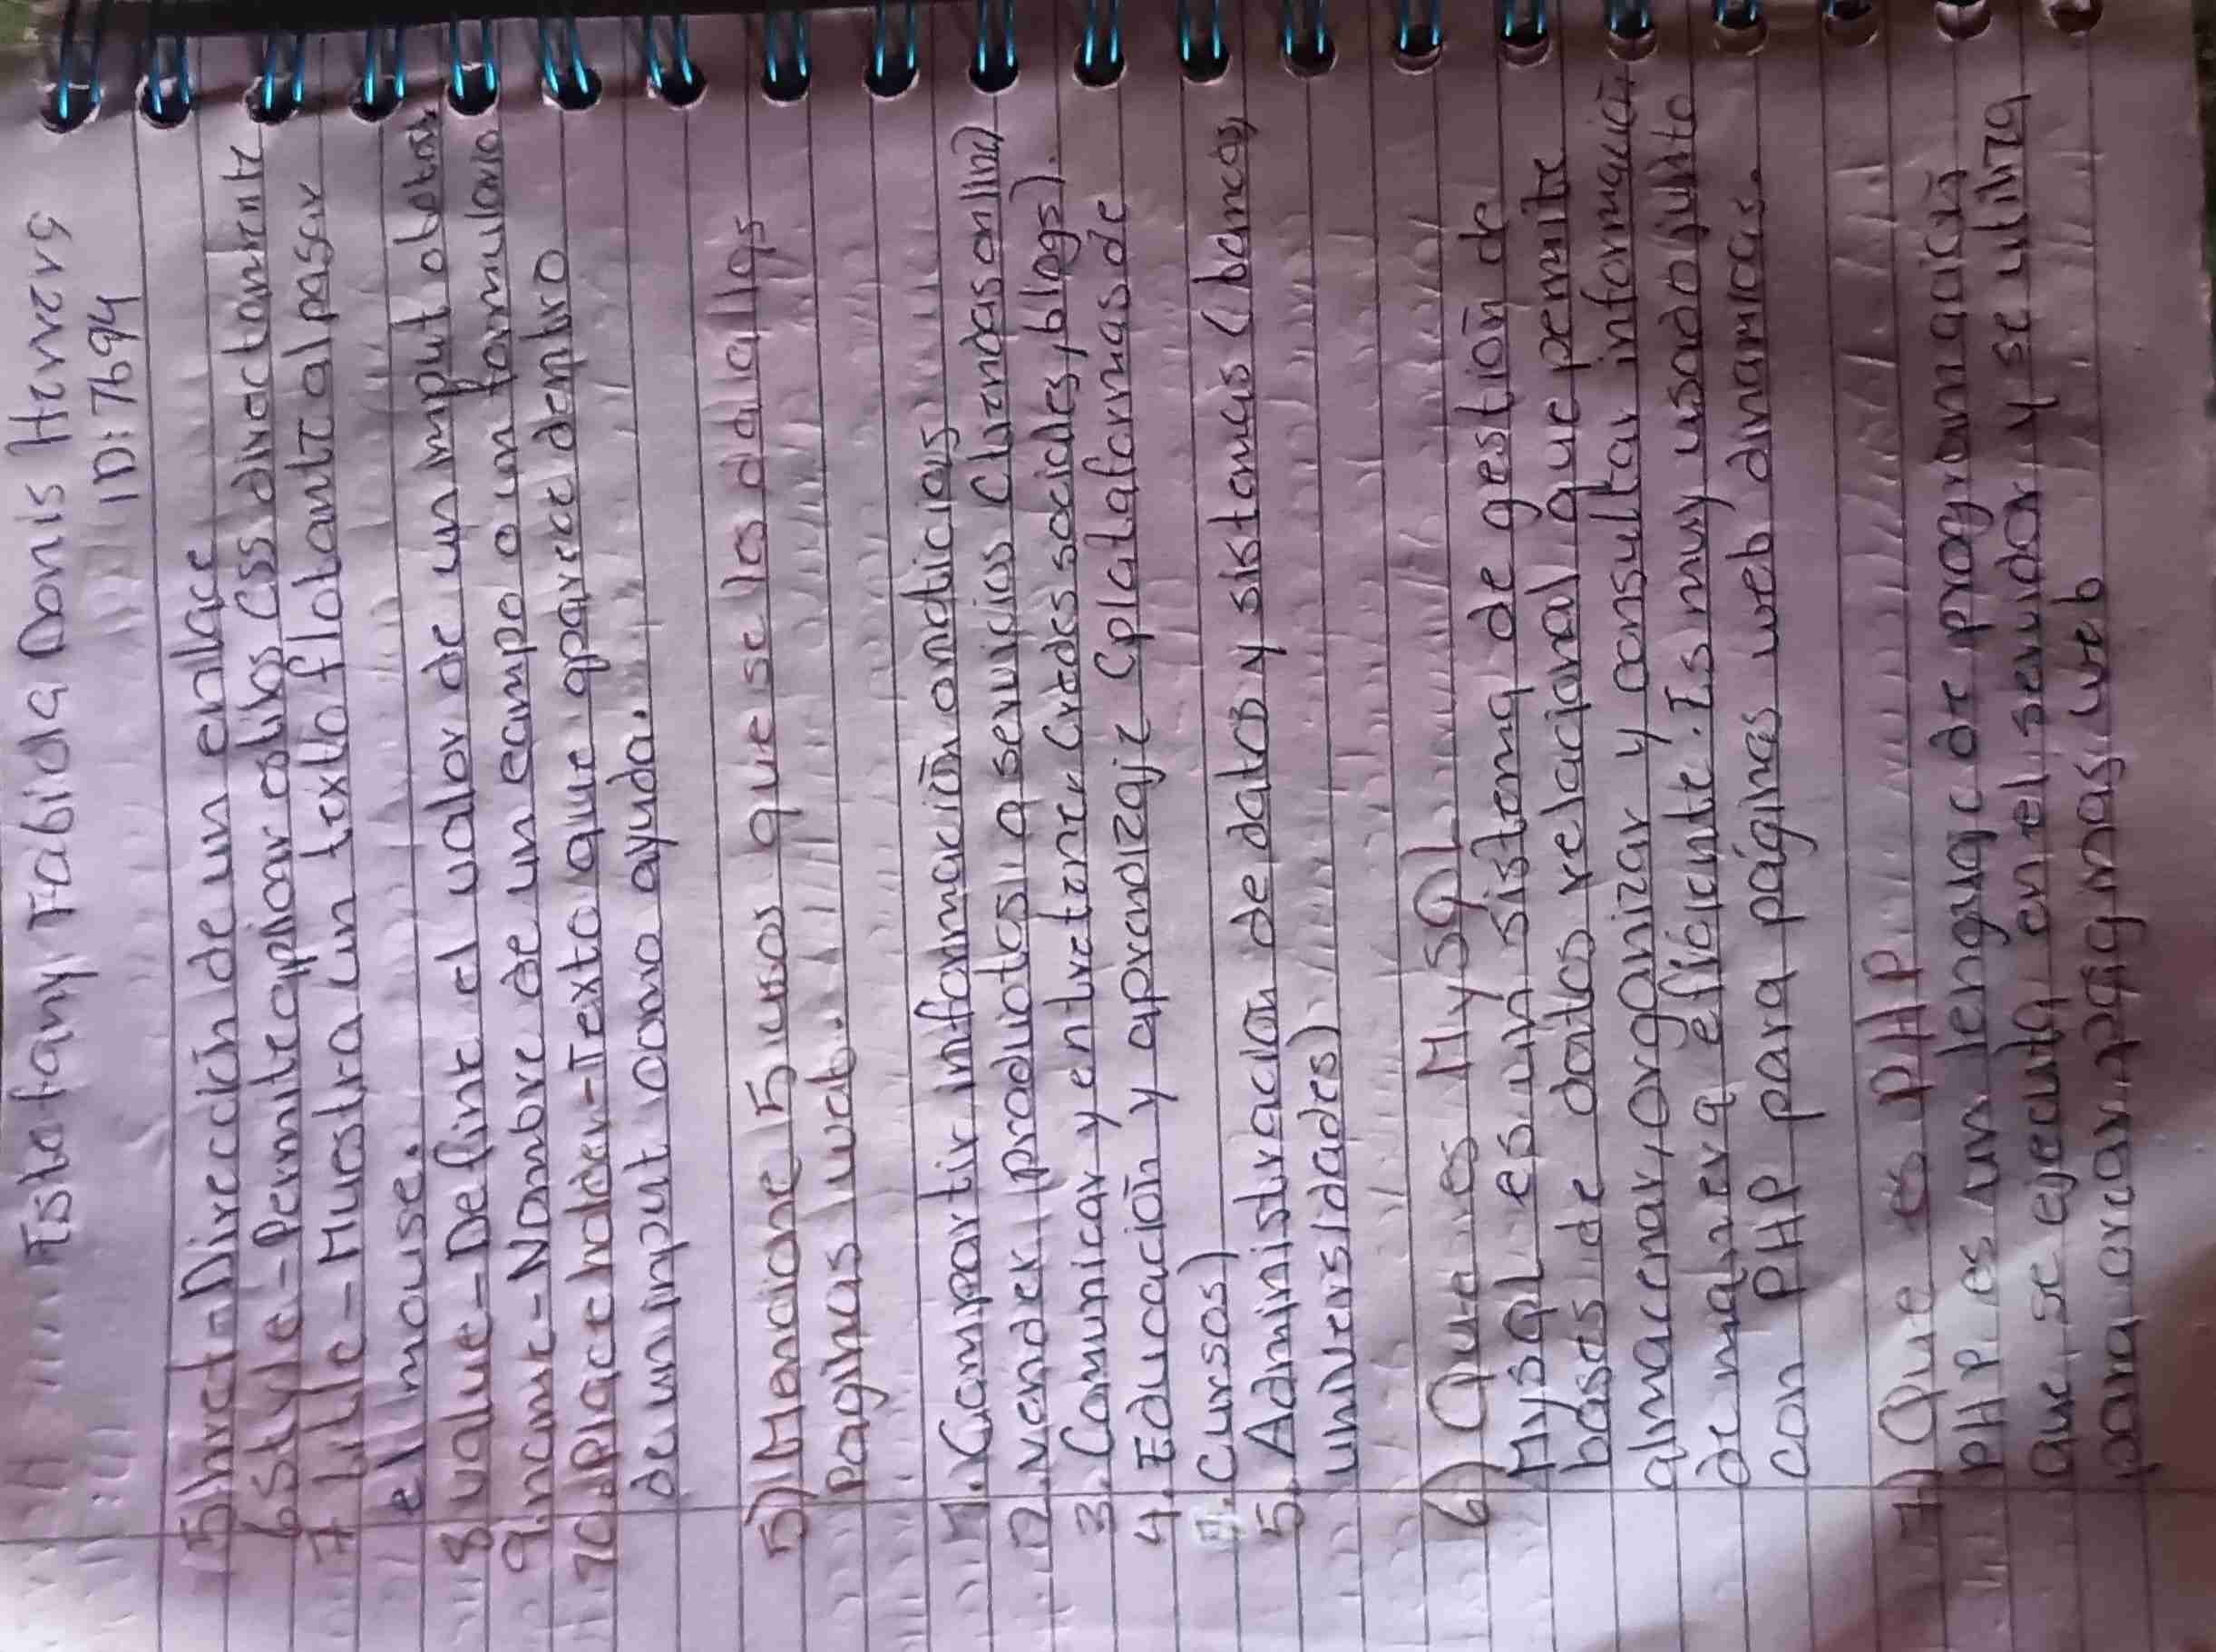 Estefany Fabiola Donis Herrera
ID: 7694
5 href - Dirección de un enlace
6 style - Permite aplicar estilos Css directamente
7 title - Muestra un texto flotante al pasar
el mouse.
8 value - Define el valor de un input o boton
9. name - Nombre de un campo o un formulario
10. placeholder - Texto que aparece dentro
de un input como ayuda.
5) Mencione 5 usos que se les da a las
Paginas web.
1. Compartir información o noticias
2. vender productos o servicios (tiendas online)
3. Comunicar y entretener (redes sociales, blogs).
4. Educación y aprendizaje (plataformas de
Cursos)
5. Administracion de datos y sistemas (bancos,
universidades)
6) Que es MySQL
MySQL es un sistema de gestión de
bases de datos relacional que permite
almacenar, organizar y consultar información
de manera eficiente. Es muy usado junto
con PHP para páginas web dinamicas.
7) Que es PHP
PHP es un lenguaje de programación
que se ejecuta en el servidor y se utiliza
para crear páginas web